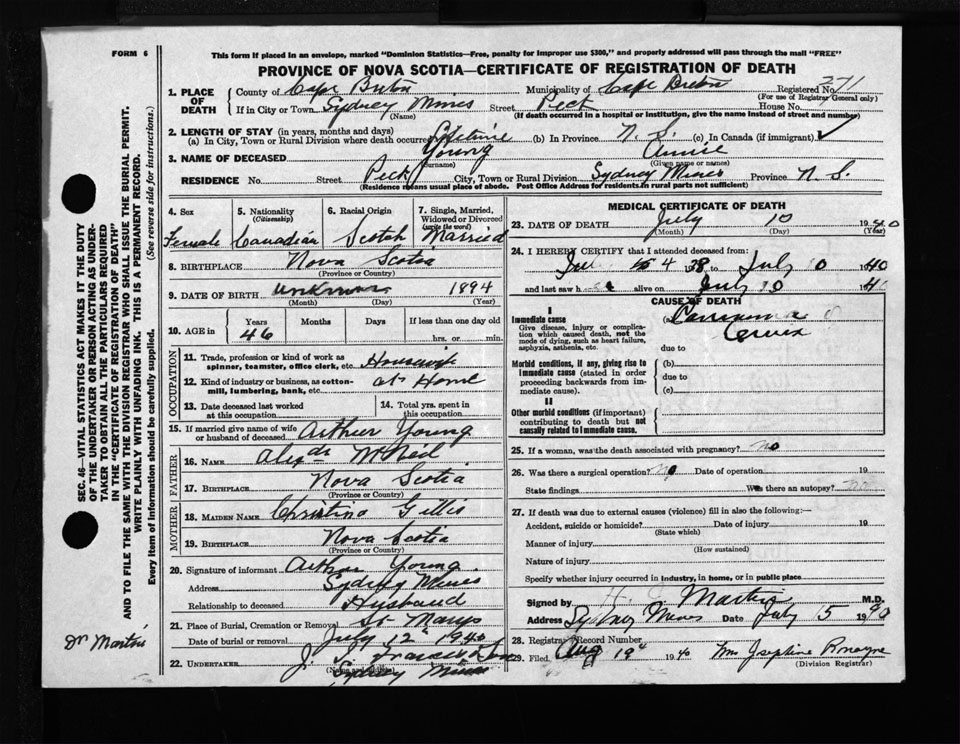 FORM 6
This form if placed in an envelope, marked "Dominion Statistics—Free, penalty for improper use $300," and properly addressed will pass through the mail "FREE"
PROVINCE OF NOVA SCOTIA—CERTIFICATE OF REGISTRATION OF DEATH
1. PLACE OF DEATH
County of Cape Breton Municipality of Cape Breton Registered No. 271
(For use of Registrar General only)
If in City or Town Sydney Mines Street Peck House No.
(Name) (If death occurred in a hospital or institution, give the name instead of street and number)
2. LENGTH OF STAY (in years, months and days)
(a) In City, Town or Rural Division where death occurred Lifetime (b) In Province N. S. (c) In Canada (if immigrant) ✓
3. NAME OF DECEASED Young Annie
(Surname) (Given name or names)
RESIDENCE No. Street Peck City, Town or Rural Division Sydney Mines Province N. S.
(Residence means usual place of abode. Post Office Address for residents in rural parts not sufficient)
4. Sex Female
5. Nationality (Citizenship) Canadian
6. Racial Origin Scotch
7. Single, Married, Widowed or Divorced (write the word) Married
8. BIRTHPLACE Nova Scotia
(Province or Country)
9. DATE OF BIRTH unknown 1894
(Month) (Day) (Year)
10. AGE in Years 46 Months Days If less than one day old hrs. or min.
OCCUPATION
11. Trade, profession or kind of work as spinner, teamster, office clerk, etc. Housewife
12. Kind of industry or business, as cotton-mill, lumbering, bank, etc. at Home
13. Date deceased last worked at this occupation
14. Total yrs. spent in this occupation
15. If married give name of wife or husband of deceased Arthur Young
FATHER
16. NAME Alexdr McNeil
17. BIRTHPLACE Nova Scotia
(Province or Country)
MOTHER
18. MAIDEN NAME Christina Gillis
19. BIRTHPLACE Nova Scotia
(Province or Country)
20. Signature of informant Arthur Young
Address Sydney Mines
Relationship to deceased Husband
21. Place of Burial, Cremation or Removal St Marys
Date of burial or removal July 12" 1940
22. UNDERTAKER J.
(Name and address) Sydney Mines
MEDICAL CERTIFICATE OF DEATH
23. DATE OF DEATH July 10 1940
(Month) (Day) (Year)
24. I HEREBY CERTIFY that I attended deceased from:
4 1938 to July 10 1940
and last saw her alive on July 10 1940
CAUSE OF DEATH
I
Immediate cause (a)
Give disease, injury or complication which caused death, not the mode of dying, such as heart failure, asphyxia, asthenia, etc.
Cervix
due to
Morbid conditions, if any, giving rise to immediate cause (stated in order proceeding backwards from immediate cause).
(b)
due to
(c)
II
Other morbid conditions (if important) contributing to death but not causally related to immediate cause.
25. If a woman, was the death associated with pregnancy? no
26. Was there a surgical operation? no Date of operation 19
State findings Was there an autopsy? no
27. If death was due to external causes (violence) fill in also the following:—
Accident, suicide or homicide? Date of injury 19
(State which)
Manner of injury
(How sustained)
Nature of injury
Specify whether injury occurred in industry, in home, or in public place
Signed by Martin M.D.
Address Sydney Mines Date July 15 1940
28. Registrar's Record Number
29. Filed Aug 19th 1940 Mrs Josephine
(Division Registrar)
SEC. 46—VITAL STATISTICS ACT MAKES IT THE DUTY
OF THE UNDERTAKER OR PERSON ACTING AS UNDER-
TAKER TO OBTAIN ALL THE PARTICULARS REQUIRED
IN THE "CERTIFICATE OF REGISTRATION OF DEATH"
AND TO FILE THE SAME WITH THE DIVISION REGISTRAR WHO SHALL ISSUE THE BURIAL PERMIT.
WRITE PLAINLY WITH UNFADING INK. THIS IS A PERMANENT RECORD.
Every item of information should be carefully supplied. (See reverse side for instructions.)
Dr Martin